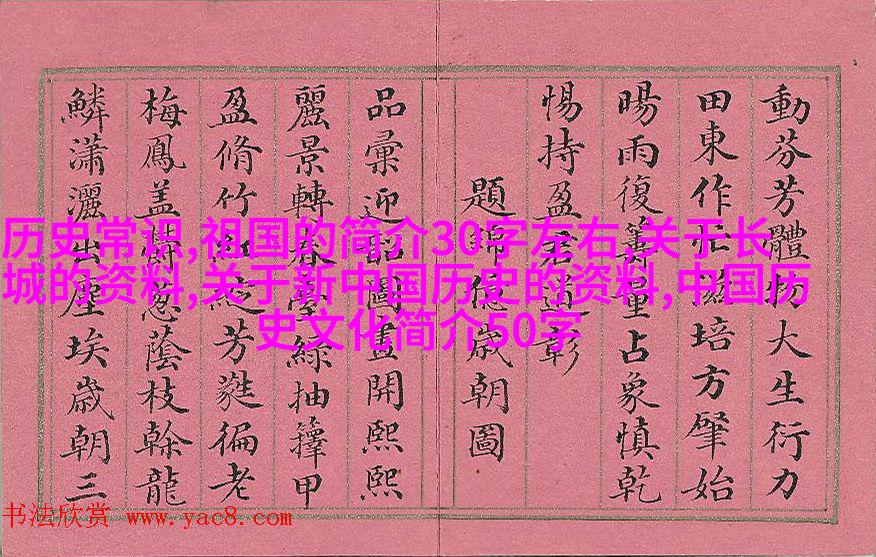 動芬芳體物大生衍力
田東作滋培方肇始
暘雨復籌量占象慎乾
惕持盈君道彰
題錦歲朝圖
品彙迎韶圖畫開熙熙
麗景轉春臺綠抽籜甲
盈脩竹紅綻芳蕤徧老
梅鳳蓋蔚蔥蔭枝榦龍
鱗瀟灑出塵埃歲朝三
历史常识,祖国的简介30字左右,关于长
城的资料,关于新中国历史的资料,中国历
史文化简介50字
书法欣赏 www.yac8.com